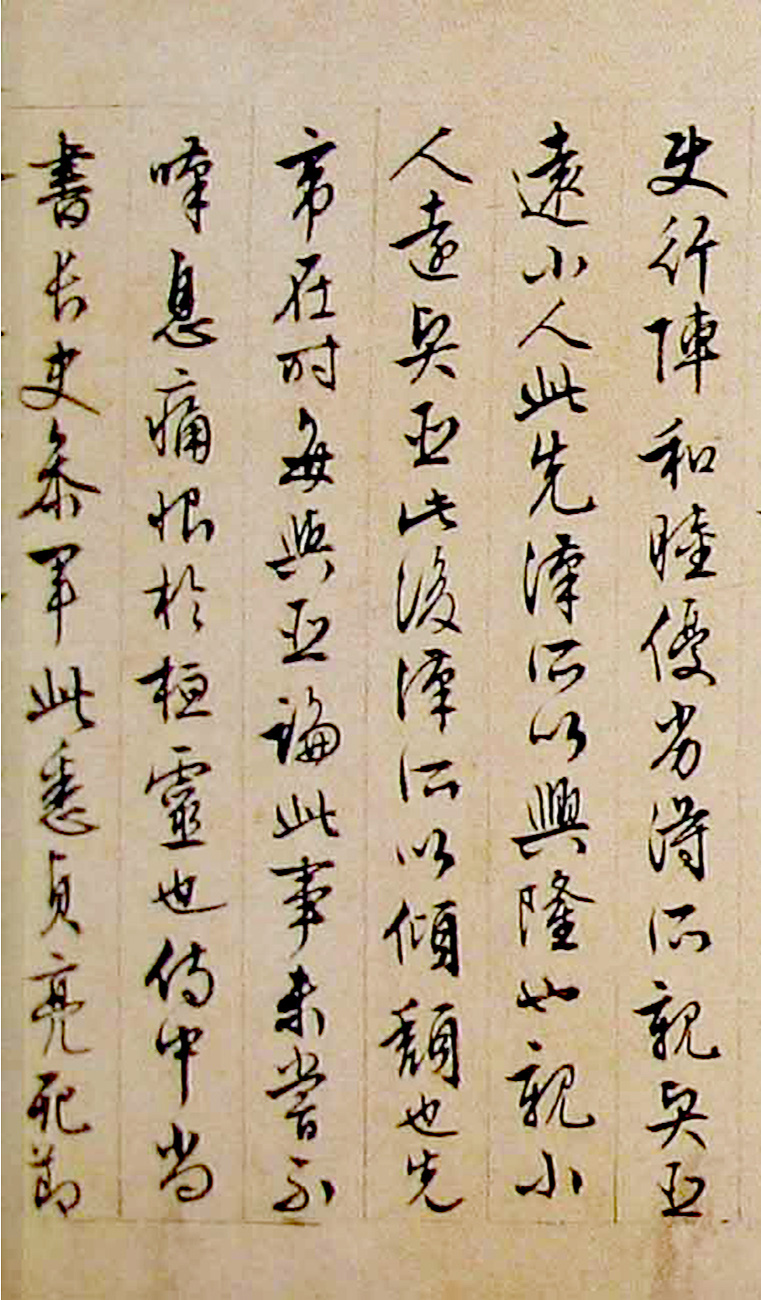 使行陣和睦優劣得所親賢臣
遠小人此先漢所以興隆也親小
人遠賢臣此後漢所以傾頹也先
帝在時每與臣論此事未嘗不
嘆息痛恨於桓靈也侍中尚
書長史參軍此悉貞亮死節